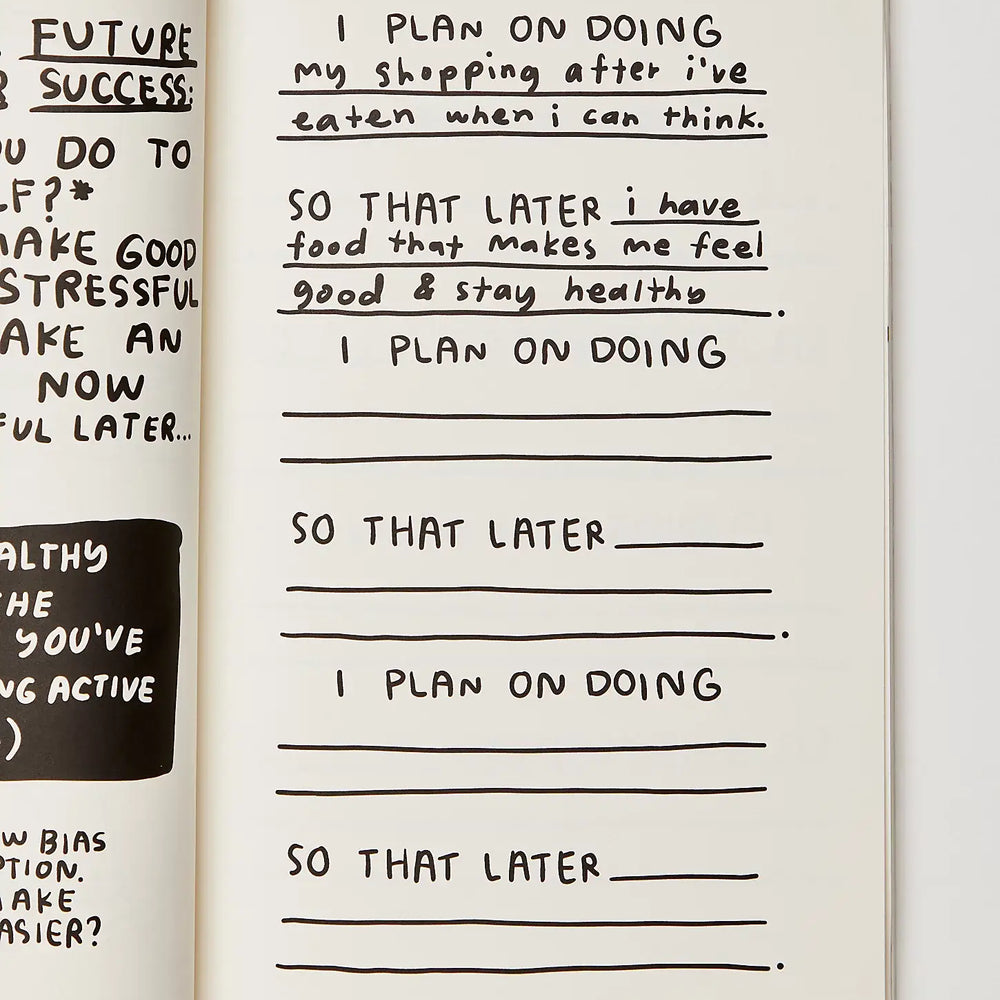 FUTURE
SUCCESS:
DO TO
MAKE GOOD
STRESSFUL
AN
NOW
LATER...
THE
YOU'VE
ACTIVE
)
BIAS
MAKE
I PLAN ON DOING
my shopping after i've
eaten when i can think.
SO THAT LATER i have
food that makes me feel
good & stay healthy
.
I PLAN ON DOING
SO THAT LATER
.
I PLAN ON DOING
SO THAT LATER
.